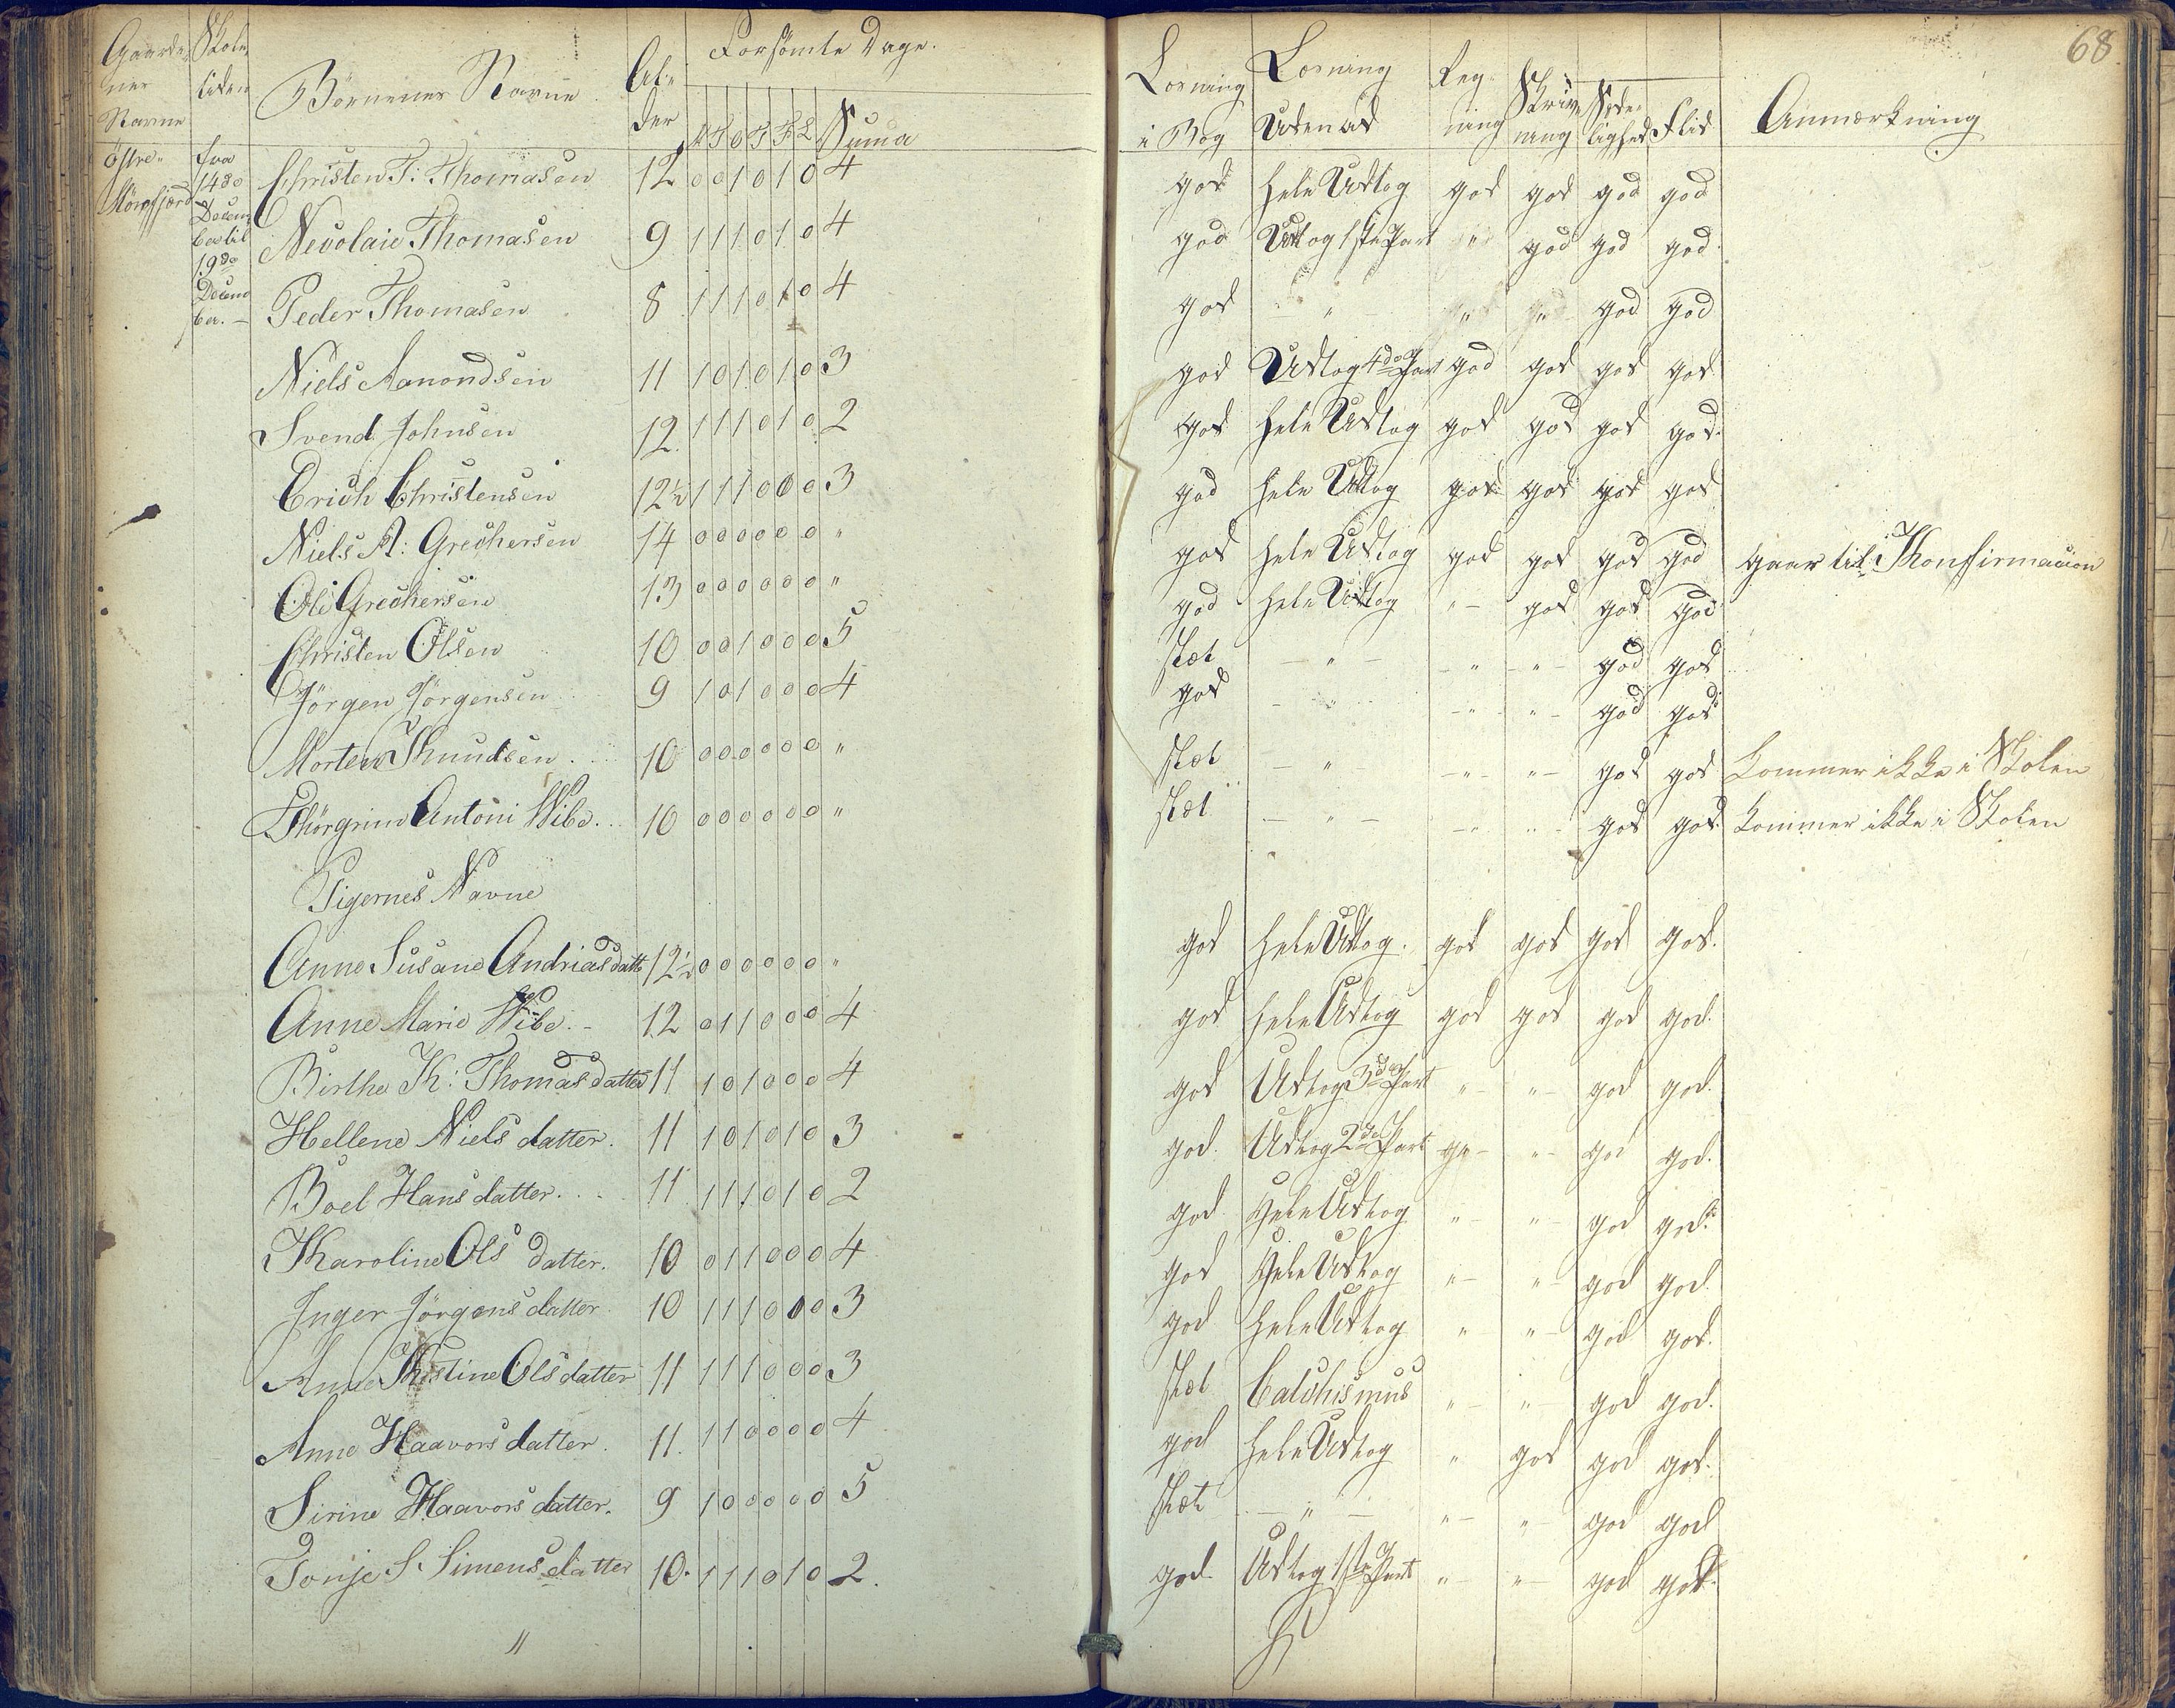 68.
Gaarde- Skole Børnenes Navne Al- Forsømte Dage. Læsning Læsning Reg- Skriv- Sæde- Flid Anmærkning
nes tiden der M T O T F L Summa i Bog Udenad ning ning lighed
Navne
Østre- fra 14de Decem ber til 19de Decem ber. —
Christen T: Thomasen 12 0 0 1 0 1 0 4 god hele Udtog god god god god
Nicolaie Thomasen 9 1 1 1 0 1 0 4 god Udtog 1ste Part " god god god
Peder Thomasen 8 1 1 1 0 1 0 4 god " " " god god
Niels Aanondsen 11 1 0 1 0 1 0 3 god Udtog 4de Part god god god god
Svend Johnsen 12. 1 1 1 0 1 0 2 god hele Udtog god god god god
Erich Christensen 12½ 1 1 1 0 0 0 3 god hele Udtog god god god god
Niels A: Grechersen 14 0 0 0 0 0 0 " god hele Udtog god god god god gaar til Konfirmacion
Ole Grechersen 13 0 0 0 0 0 0 " god hele Udtog " god god god
Christen Olsen 10 0 0 1 0 0 0 5 slæt " " " god god
Jörgen Jörgensen 9 1 0 1 0 0 0 4 god " " " god god
Morten Knudsen. 10 0 0 0 0 0 0 " slæt " " " god god kommer ikke i Skolen
Thörgrim Antoni Wibe. 10 0 0 0 0 0 0 " slæt " " " god god kommer ikke i Skolen
Pigernes Navne
Anne Susane Andriasdatt 12½ 0 0 0 0 0 0 " god hele Udtog. god god god god.
Anne Marie Wibe. - 12 0 1 1 0 0 0 4 god hele Udtog god god god god.
Birthe K: Thomasdatter 11 1 0 1 0 0 0 4 god Udtog 3de Part " " god god.
Hellene Niels datter. 11 1 0 1 0 1 0 3 god. Udtog 2de Part " " god god.
Boel Hans datter. 11 1 1 1 0 1 0 2 god Hele Udtog " " god god.
Karoline Ols datter. 10 0 1 1 0 0 0 4 god Hele Udtog " " god god.
Inger Jörgens datter 10 1 1 1 0 0 0 3 god hele Udtog " " god god.
Anne Kistine Ols datter 11 1 1 1 0 0 0 3 slæt Catchismus " " god god.
Anne Haavors datter. 11. 1 1 0 0 0 0 4 god hele Udtog " god god god.
Sirine Haavors datter. 9 1 0 0 0 0 0 5 slæt " " " god god
Tonje S. Simens datter 10. 1 1 1 0 1 0 2. god. Udtog 1ste Part " " god god.
"